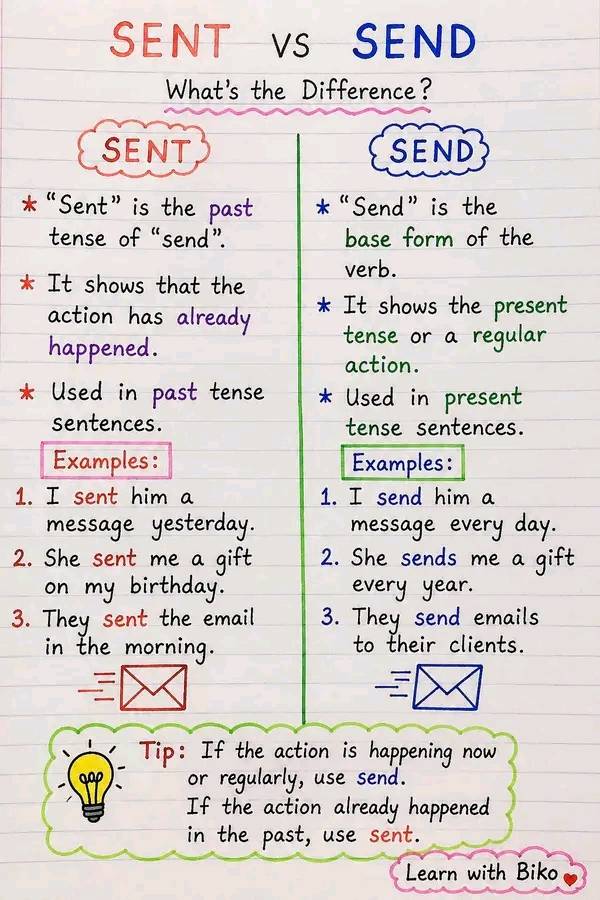 SENT vs SEND
What's the Difference?
SENT
* "Sent" is the past
tense of "send".
* It shows that the
action has already
happened.
* Used in past tense
sentences.
Examples:
1. I sent him a
message yesterday.
2. She sent me a gift
on my birthday.
3. They sent the email
in the morning.
SEND
* "Send" is the
base form of the
verb.
* It shows the present
tense or a regular
action.
* Used in present
tense sentences.
Examples:
1. I send him a
message every day.
2. She sends me a gift
every year.
3. They send emails
to their clients.
Tip: If the action is happening now
or regularly, use send.
If the action already happened
in the past, use sent.
Learn with Biko